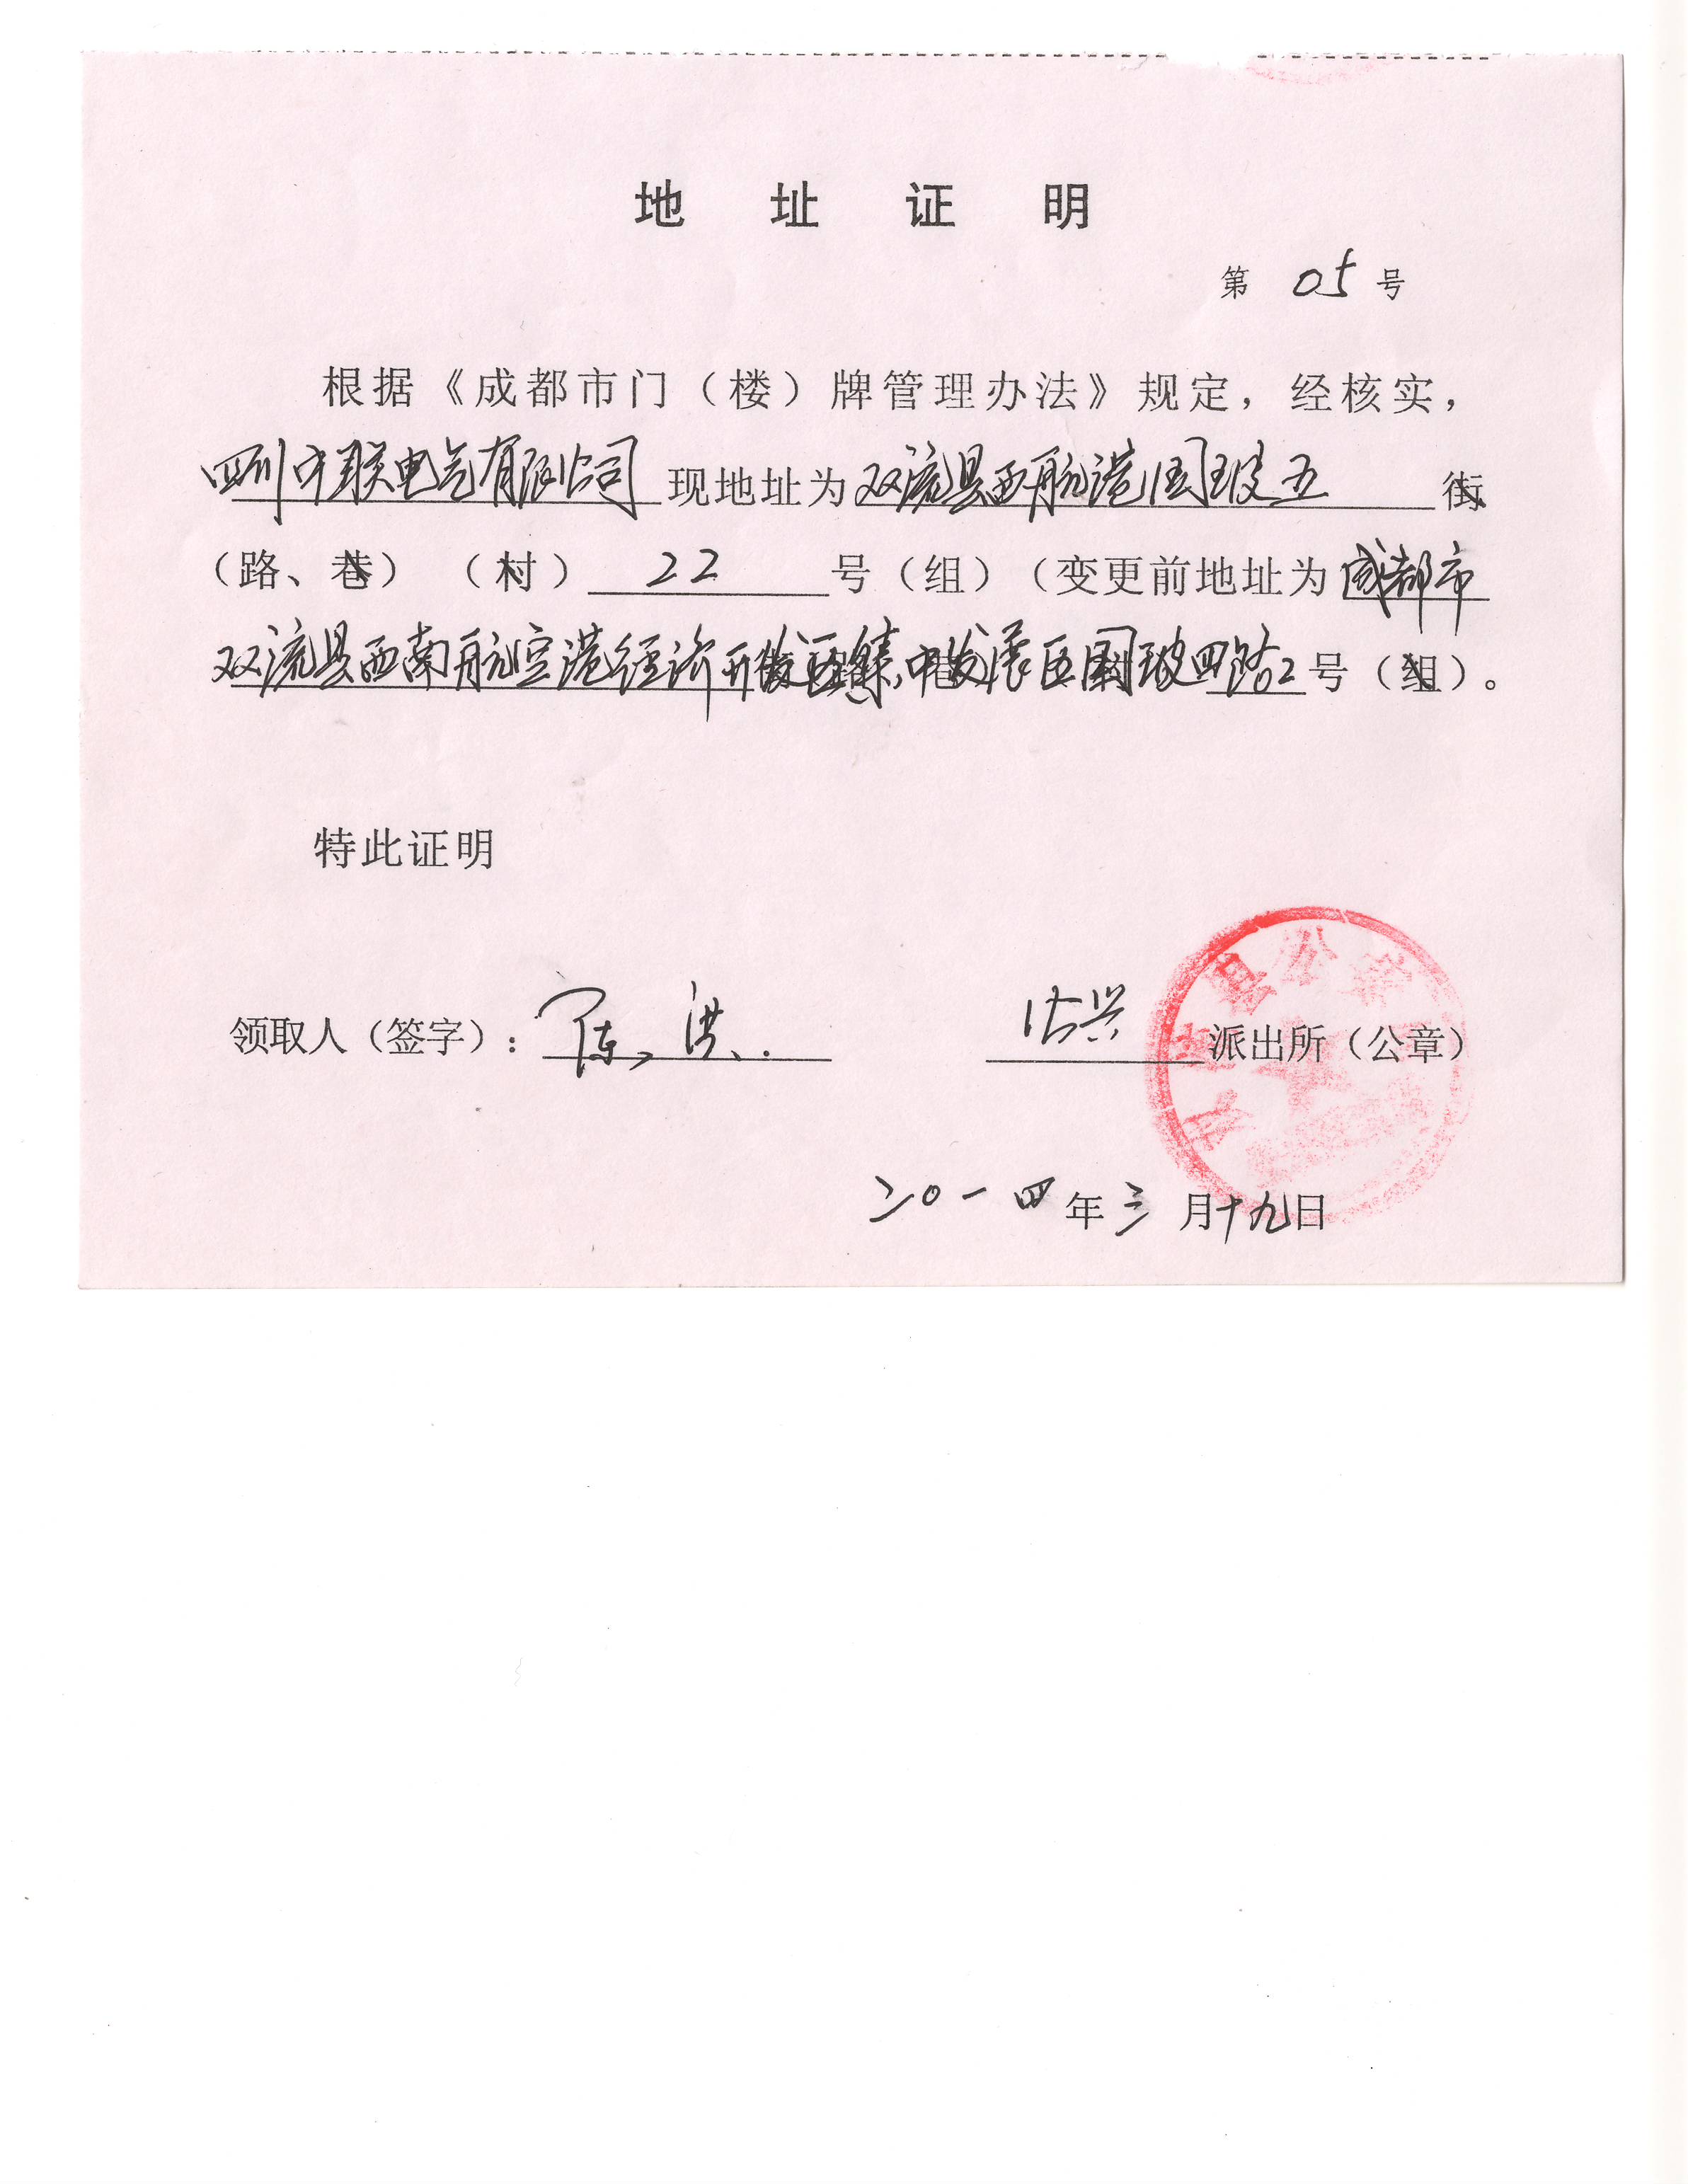 地址证明
第 05 号
根据《成都市门（楼）牌管理办法》规定，经核实，
四川中联电气有限公司 现地址为 双流县西航港 五 街
（路、巷）（村） 22 号（组）（变更前地址为 成都市
双流县西南航空港经济开发区集中发展区 四路2 号（组）。
特此证明
领取人（签字）：陈洪 公兴 派出所（公章）
二〇一四 年 三 月 十九 日